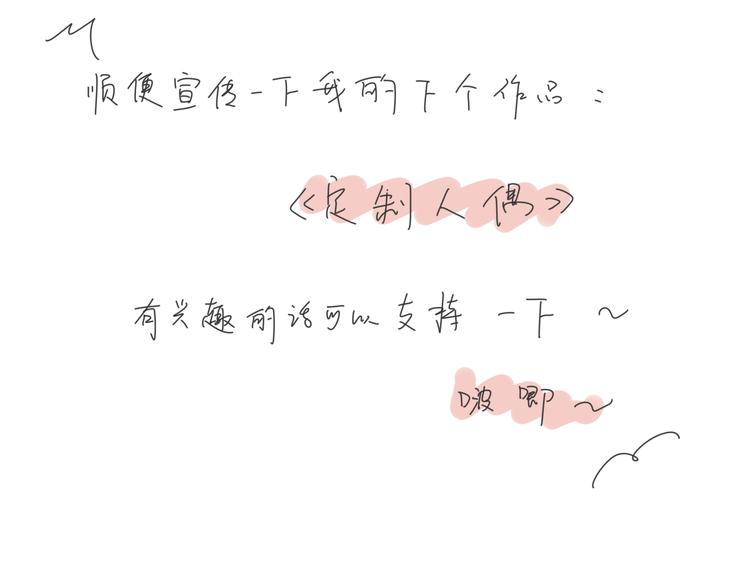 顺便宣传一下我的下个作品：
《定制人偶》
有兴趣的话可以支持一下～
啵唧～